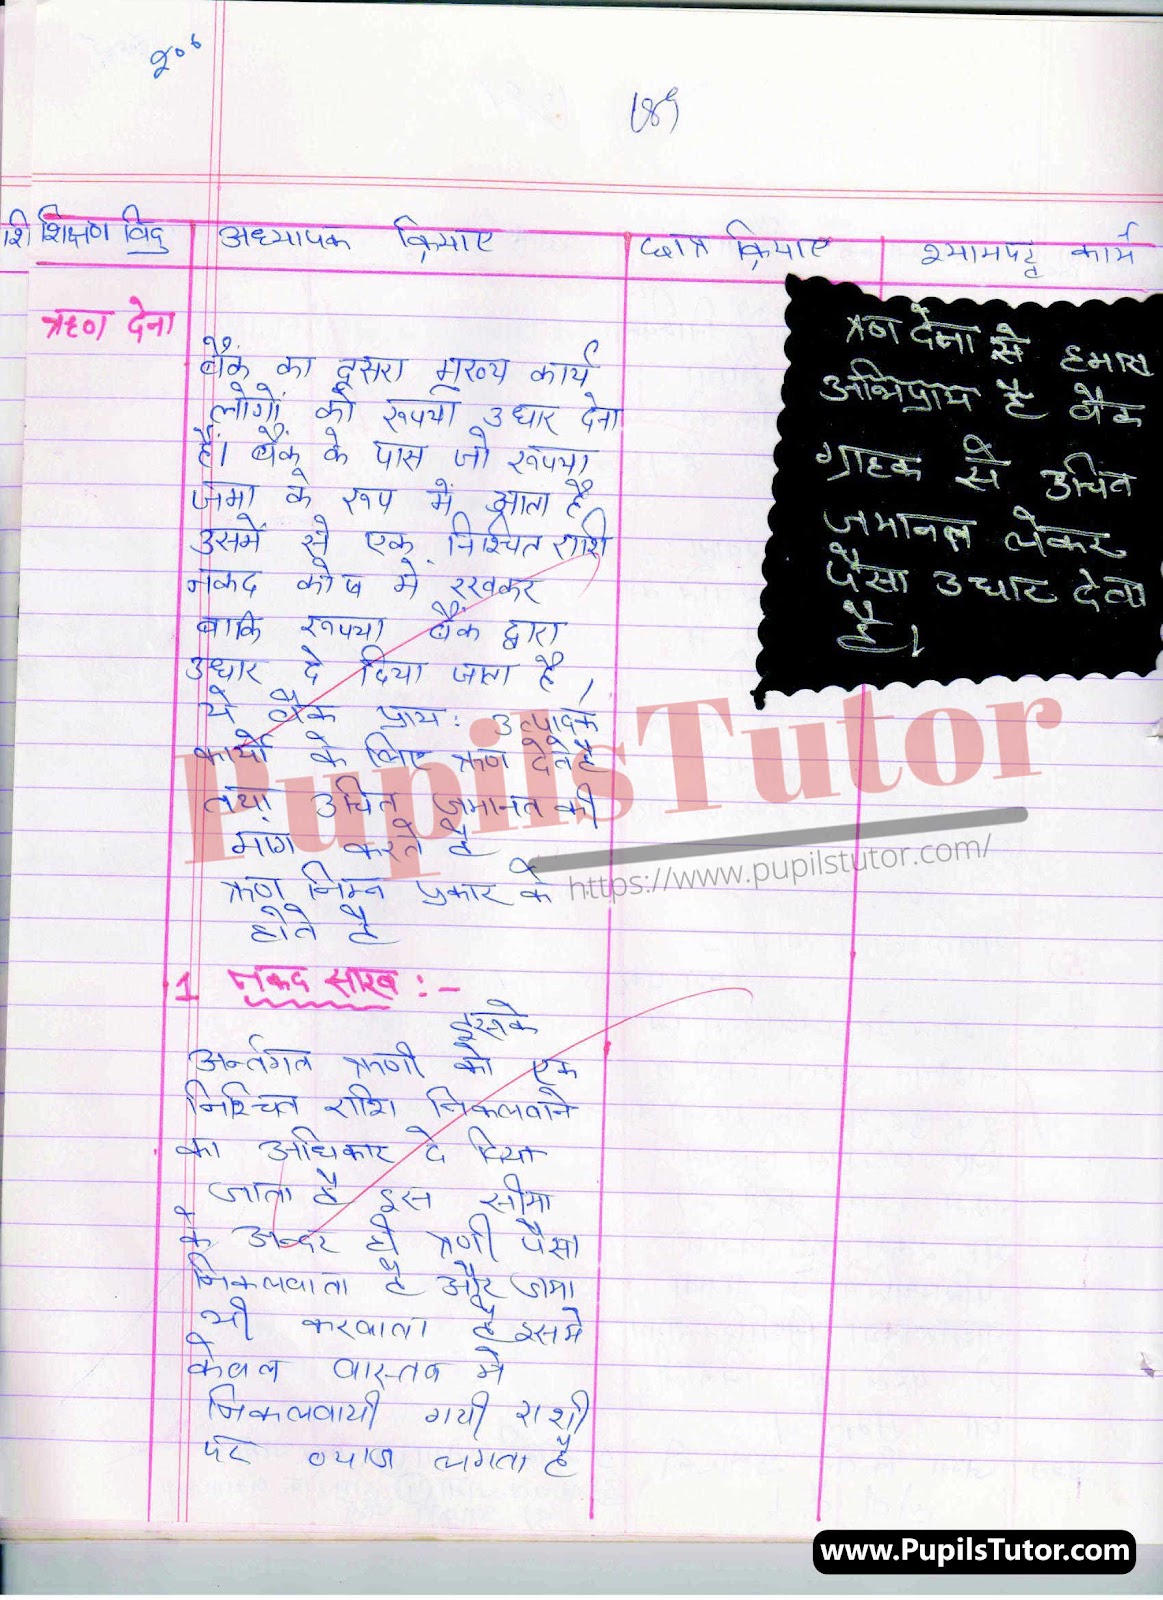 २०६
शि शिक्षण विंदु अध्यापक क्रियाए छात्र क्रियाए श्यामपट्ट कार्य
ऋण देना
बैंक का दूसरा मुख्य कार्य
लोगों को रूपया उधार देना
हैं। बैंक के पास जो रूपया
जमा के रूप में आता है
उसमें से एक निश्चित राशि
नकद कोष मे रखकर
बाकि रूपया बैंक द्वारा
उधार दे दिया जाता है।
ये बैंक प्राय: उत्पादक
कार्यो के लिए ऋण देते है
तथा उचित जमानत की
मांग करते है
ऋण निम्न प्रकार के
होते है
1 नकद साख :-
इसके
अर्न्तगत ऋणी को एक
निश्चित राशि निकलवाने
का अधिकार दे दिया
जाता है इस सीमा
के अन्दर ही ऋणी पैसा
निकलवाता है और जमा
भी करवाता है इसमे
केवल वास्तव मे
निकलवायी गयी राशी
पर व्याज लगता है
ऋण देना से हमारा
अभिप्राय है बैंक
ग्राहक से उचित
जमानत लेकर
पैसा उधार देता
है।
PupilsTutor
https://www.pupilstutor.com/
www.PupilsTutor.com